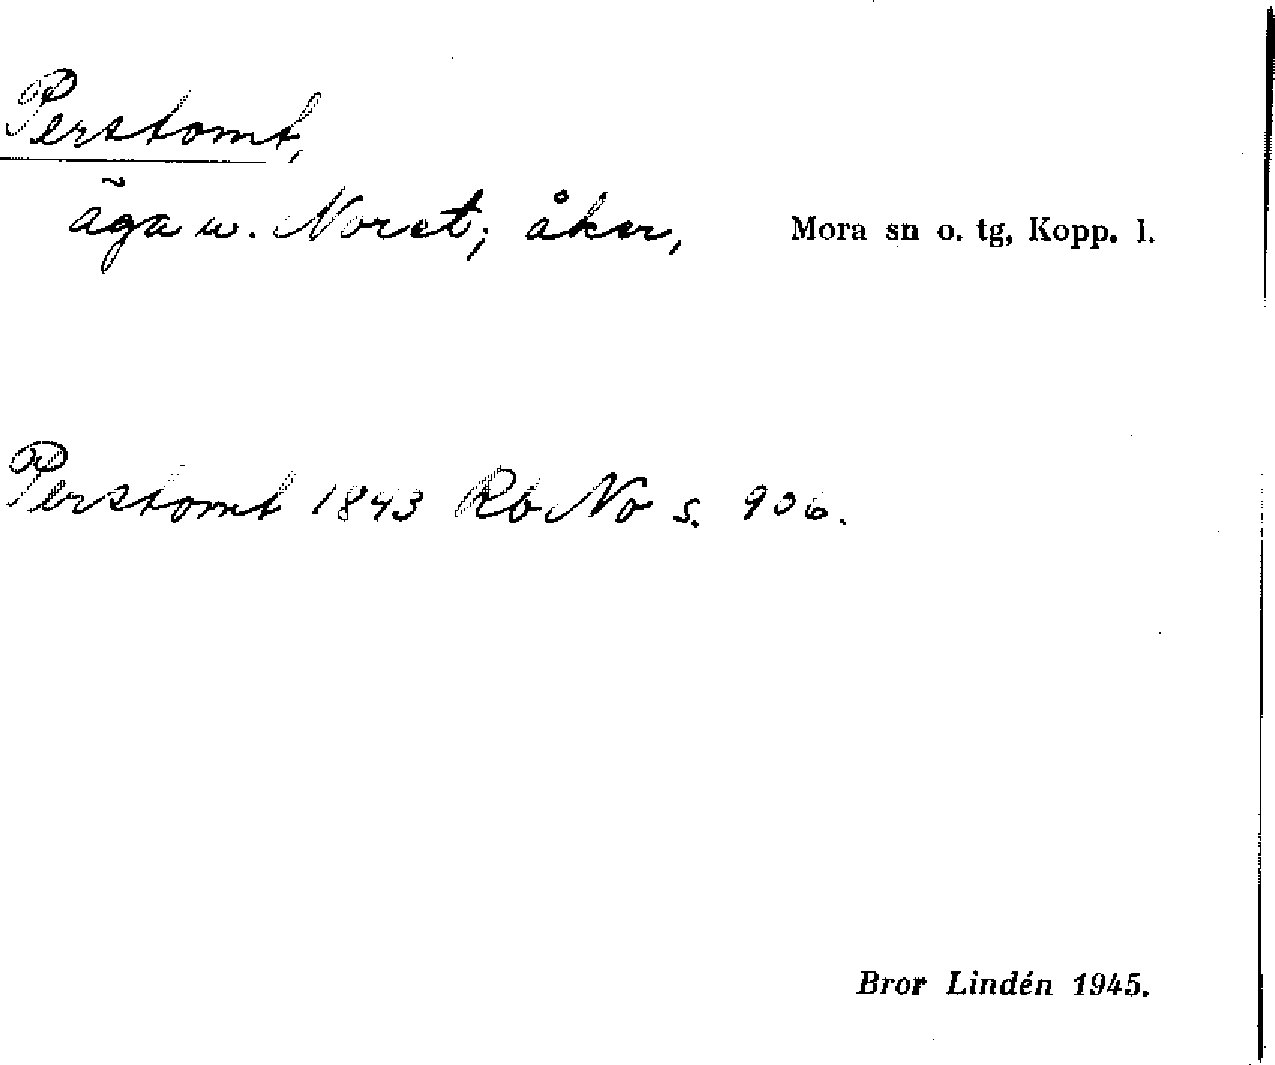 Perstomt,
äga u. Noret; åker, Mora sn o. tg, Kopp. l.
Perstomt 1843 Rb No s. 906.
Bror Lindén 1945.